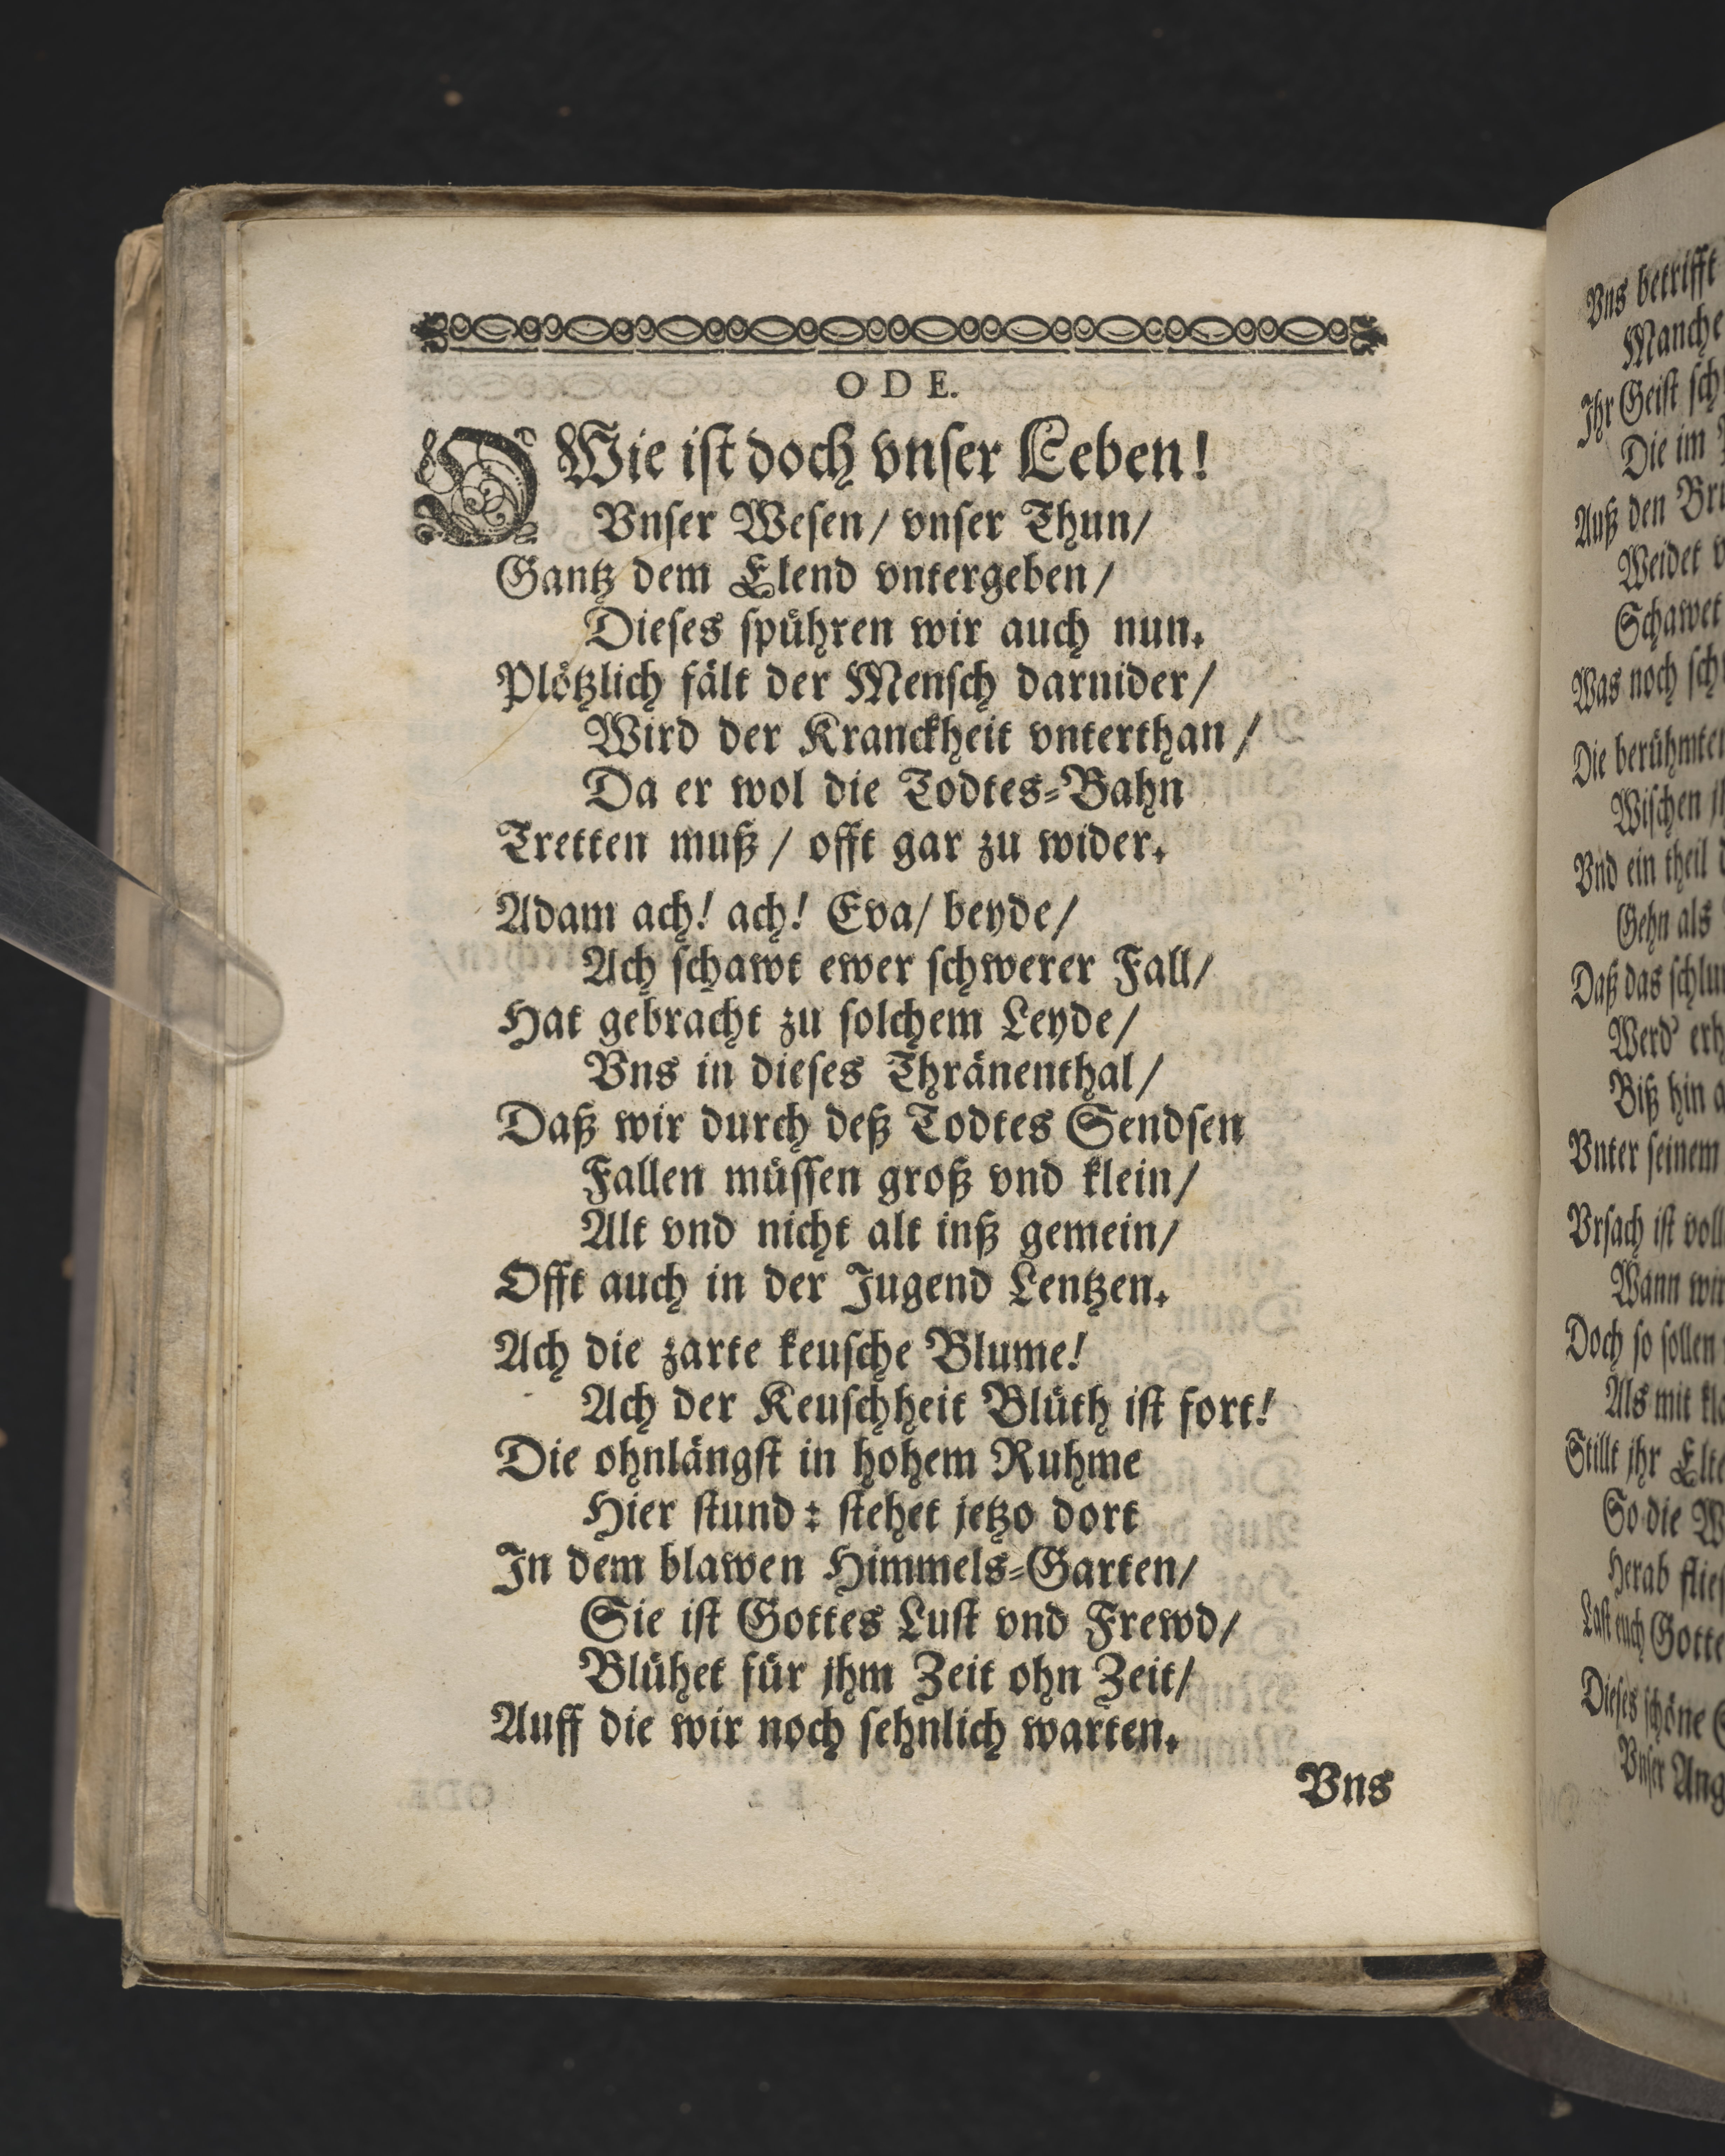 ODE.
O Wie iſt doch vnſer Leben!
Vnſer Weſen/ vnſer Thun/
Gantz dem Elend vntergeben/
Dieſes ſpühren wir auch nun.
Plötzlich fält der Menſch darnider/
Wird der Kranckheit vnterthan/
Da er wol die Todtes-Bahn
Tretten muß/ offt gar zu wider.
Adam ach! ach! Eva/ beyde/
Ach ſchawt ewer ſchwerer Fall/
Hat gebracht zu ſolchem Leyde/
Vns in dieſes Thränenthal/
Daß wir durch deß Todtes Sendſen
Fallen müſſen groß vnd klein/
Alt vnd nicht alt inß gemein/
Offt auch in der Jugend Lentzen.
Ach die zarte keuſche Blume!
Ach der Keuſchheit Blüth iſt fort!
Die ohnlängſt in hohem Ruhme
Hier ſtund: ſtehet jetzo dort
In dem blawen Himmels-Garten/
Sie iſt Gottes Luſt vnd Frewd/
Blühet für jhm Zeit ohn Zeit/
Auff die wir noch ſehnlich warten.
Vns
Vns betrifft
Manche
Ihr Geiſt ſch
Die im
Auß den Bri
Weidet v
Schawet
Was noch ſch
Die berühmten
Wiſchen
Vnd ein theil
Gehn als
Daß das ſchlu
Werd' erh
Biß hin a
Vnter ſeinem
Vrſach iſt voll
Wann wir
Doch ſo ſollen
Als mit kla
Stillt jhr Elte
So die W
Herab flieſ
Laſt euch Gotte
Dieſes ſchöne
Vnſer Ang